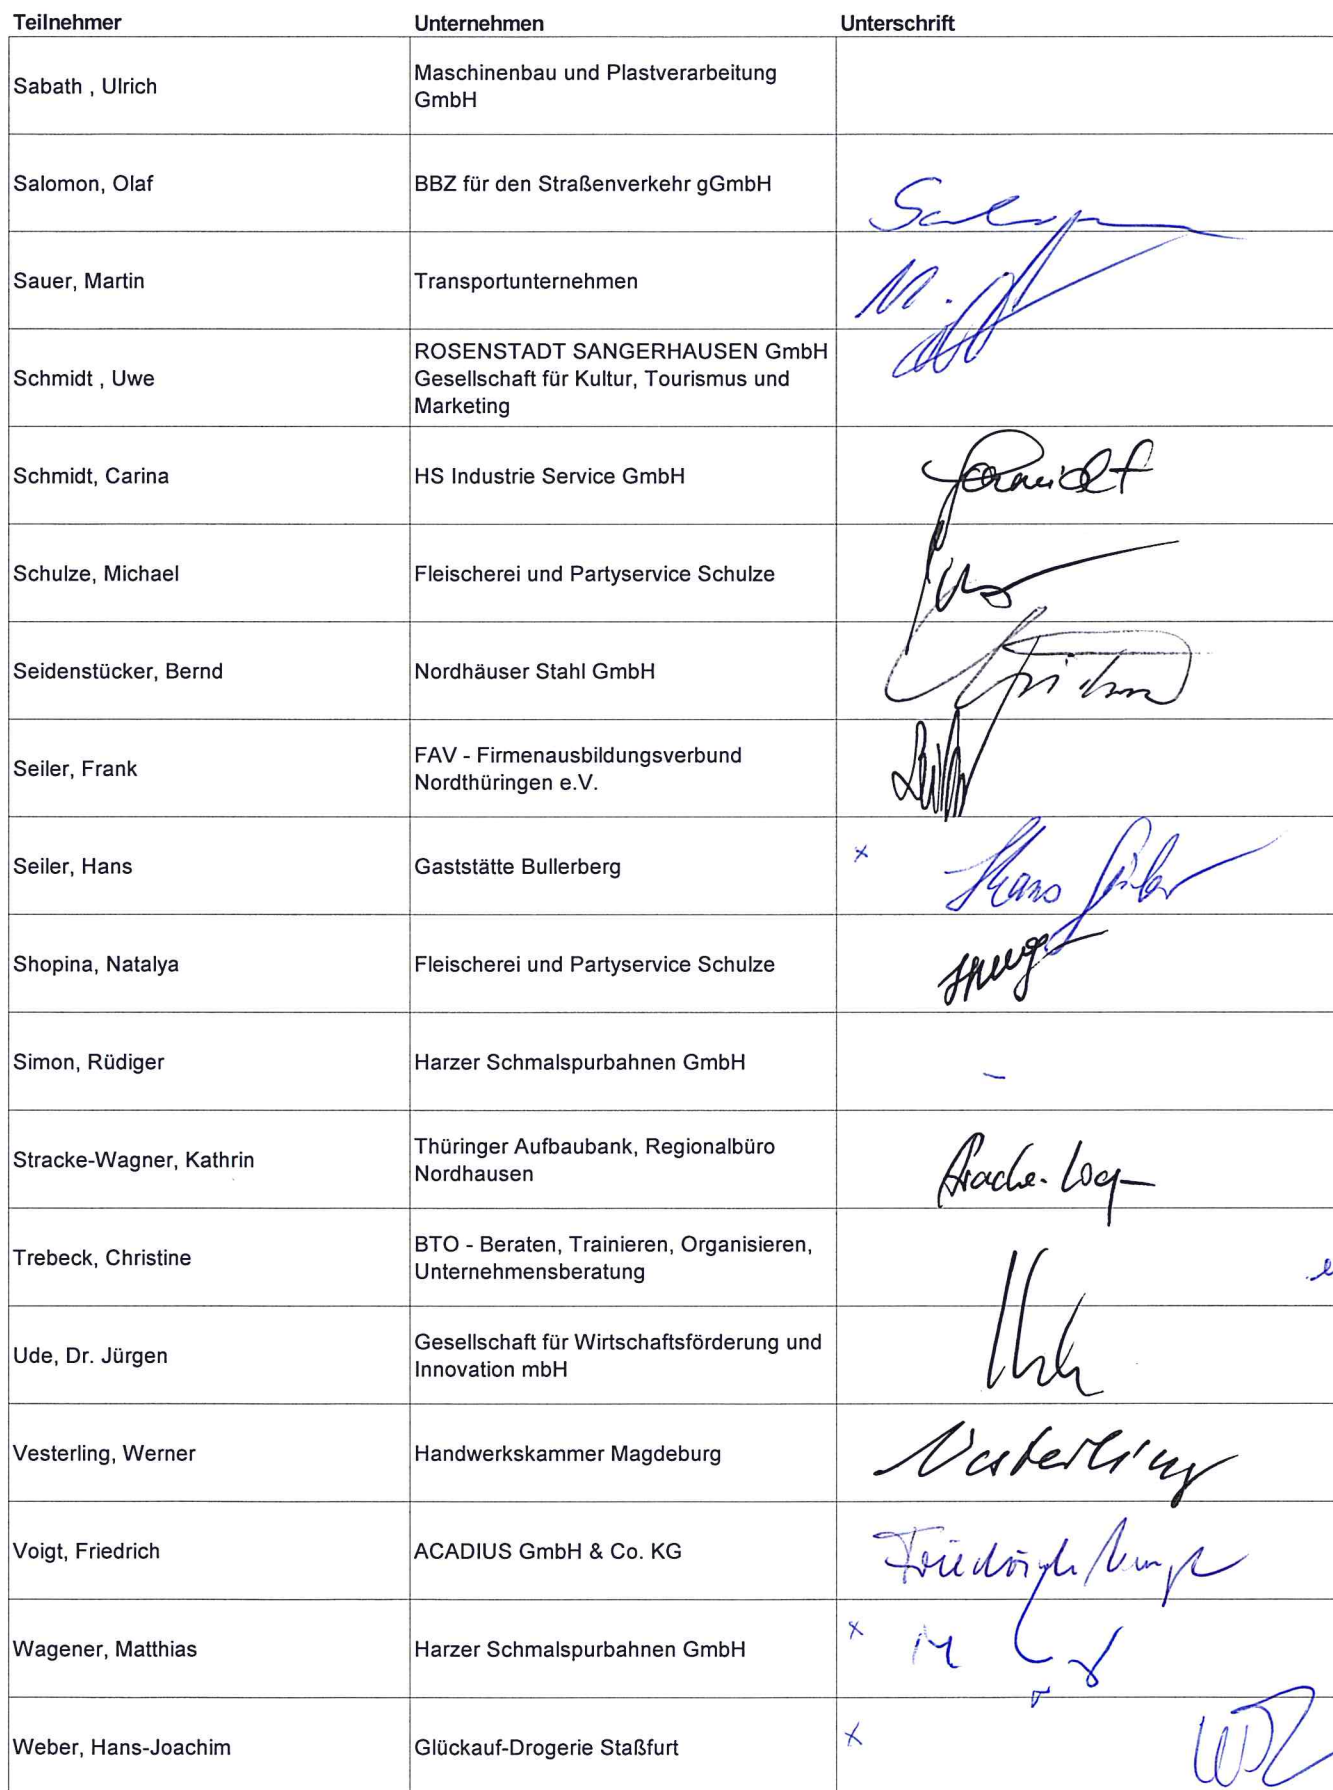 Teilnehmer Unternehmen Unterschrift
Sabath , Ulrich Maschinenbau und Plastverarbeitung
GmbH
Salomon, Olaf BBZ für den Straßenverkehr gGmbH
Sauer, Martin Transportunternehmen
Schmidt , Uwe ROSENSTADT SANGERHAUSEN GmbH
Gesellschaft für Kultur, Tourismus und
Marketing
Schmidt, Carina HS Industrie Service GmbH Schmidt
Schulze, Michael Fleischerei und Partyservice Schulze
Seidenstücker, Bernd Nordhäuser Stahl GmbH
Seiler, Frank FAV - Firmenausbildungsverbund
Nordthüringen e.V.
Seiler, Hans Gaststätte Bullerberg x Hans Seiler
Shopina, Natalya Fleischerei und Partyservice Schulze
Simon, Rüdiger Harzer Schmalspurbahnen GmbH -
Stracke-Wagner, Kathrin Thüringer Aufbaubank, Regionalbüro
Nordhausen
Trebeck, Christine BTO - Beraten, Trainieren, Organisieren,
Unternehmensberatung
Ude, Dr. Jürgen Gesellschaft für Wirtschaftsförderung und
Innovation mbH
Vesterling, Werner Handwerkskammer Magdeburg Vesterling
Voigt, Friedrich ACADIUS GmbH & Co. KG Friedrich
Wagener, Matthias Harzer Schmalspurbahnen GmbH x
Weber, Hans-Joachim Glückauf-Drogerie Staßfurt x